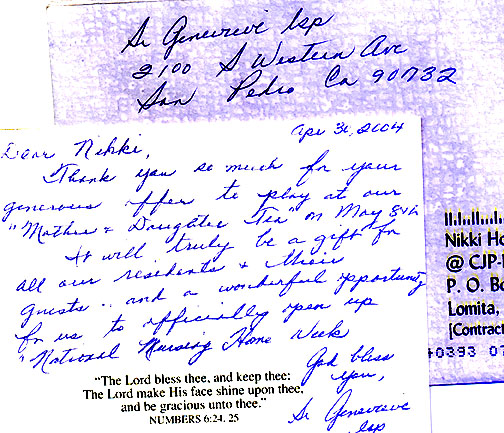 Sr Genevieve lsp
2100 S Western Ave
San Pedro Ca 90732
Apr 30, 2004
Dear Nikki,
Thank you so much for your
generous offer to play at our
"Mother & Daughter Tea" on May 8th
It will truly be a gift for
all our residents & their
guests .. and a wonderful opportunity
for us to officially open up
"National Nursing Home Week
God bless
you,
Sr Genevieve
lsp
"The Lord bless thee, and keep thee:
The Lord make His face shine upon thee,
and be gracious unto thee."
NUMBERS 6:24, 25
Nikki Ho
@ CJP-
P. O. Bo
Lomita,
[Contract
0393 07